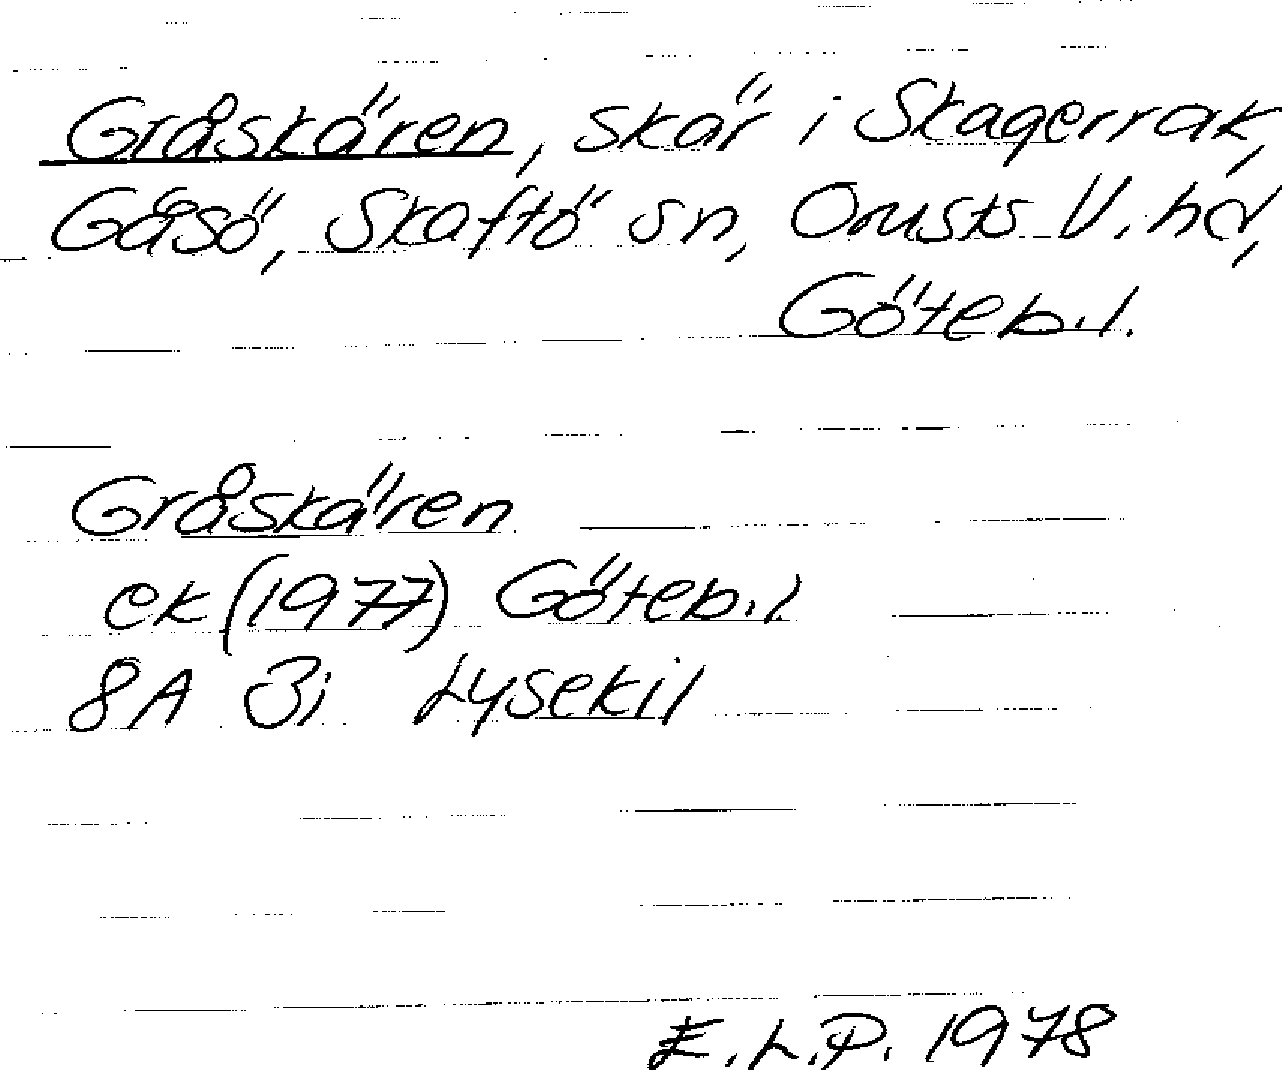 Gråskären, skär i Skagerrak,
Gåsö, Skaftö sn, Orusts V. hd,
Göteb.l.
Gråskären
ek (1977) Göteb.l.
8A 3i Lysekil
E.L.P. 1978